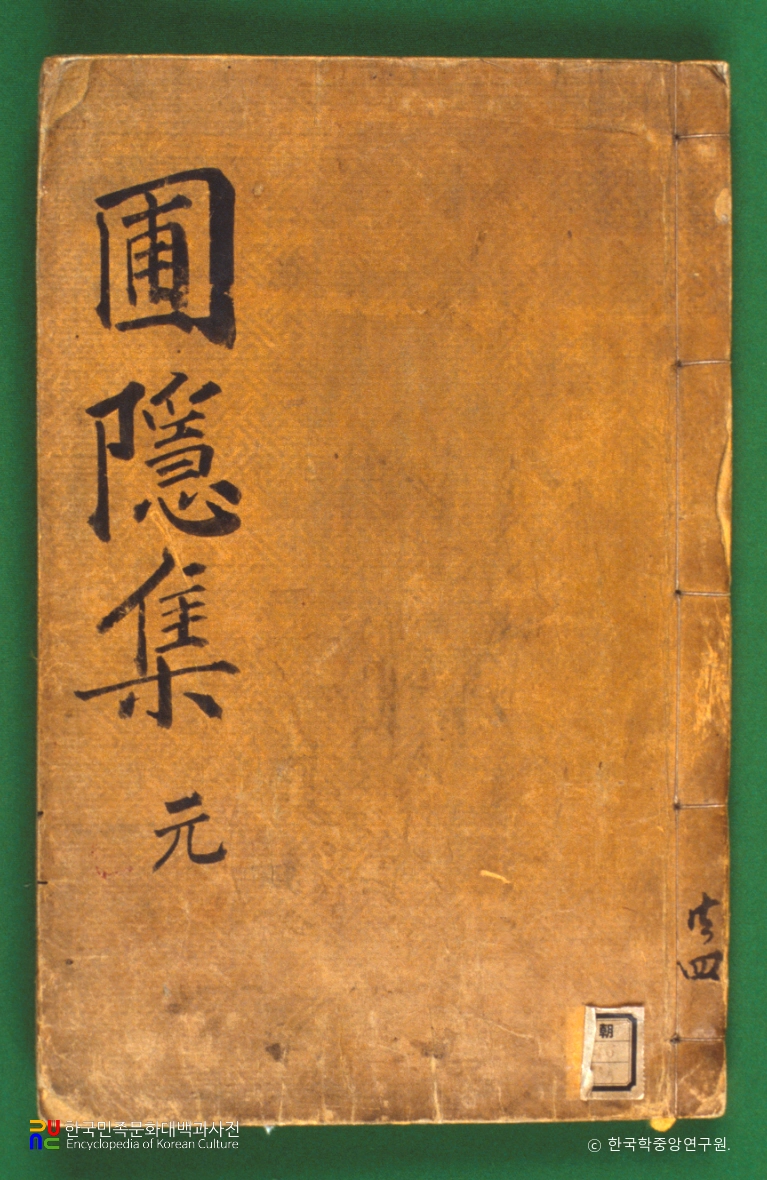 圃隱集 元
共四
朝
한국민족문화대백과사전
Encyclopedia of Korean Culture
© 한국학중앙연구원.